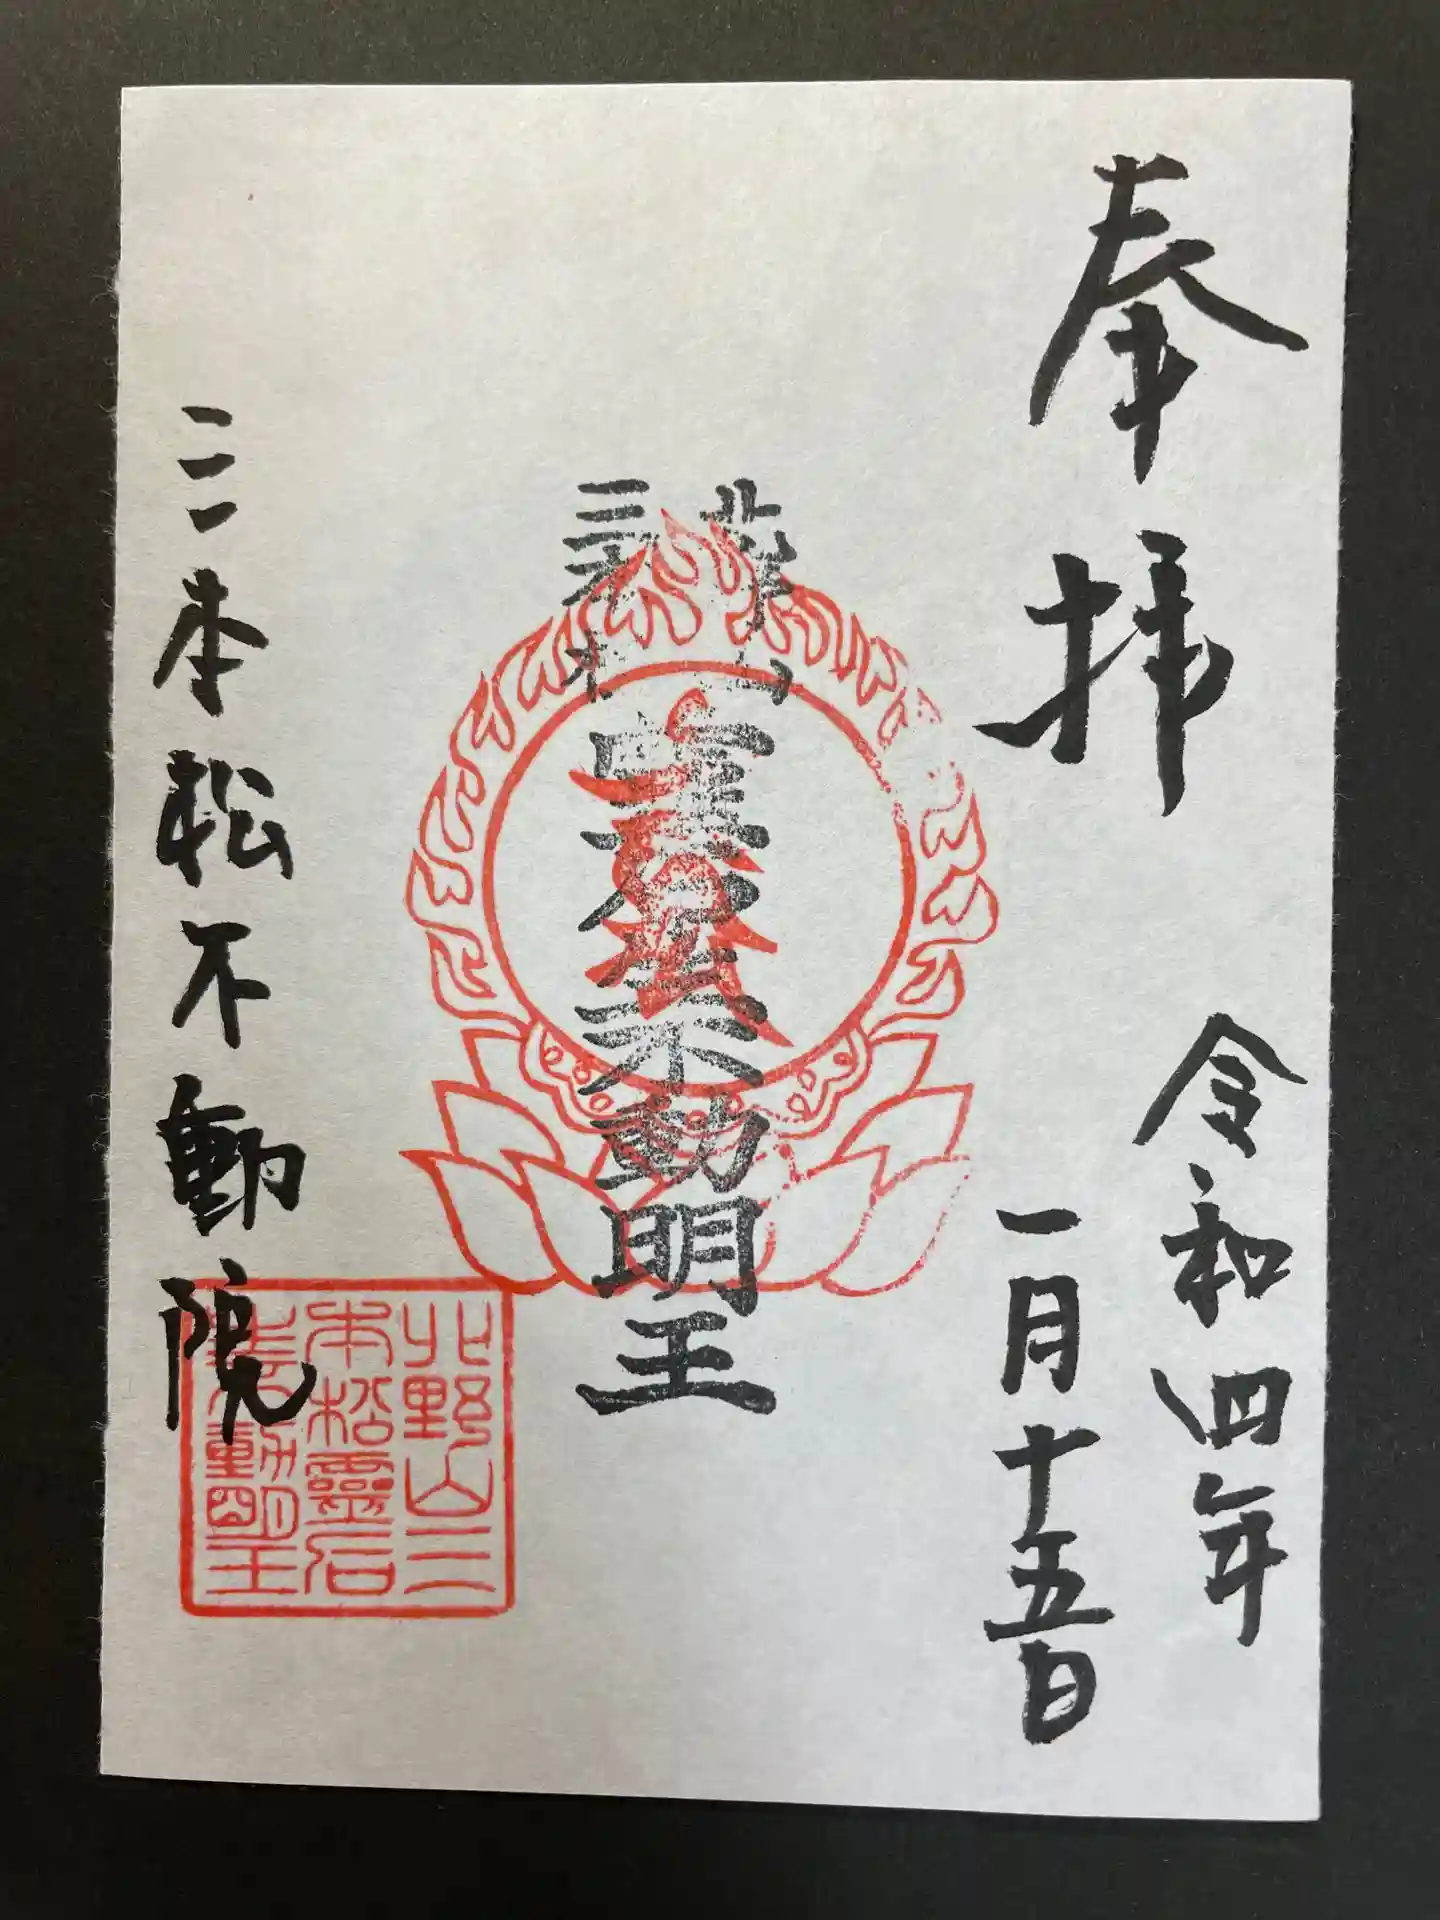 奉拝
令和四年
一月十五日
北野山
三本松
霊石不動明王
三本松不動院
北野山三
本松霊石
不動明王